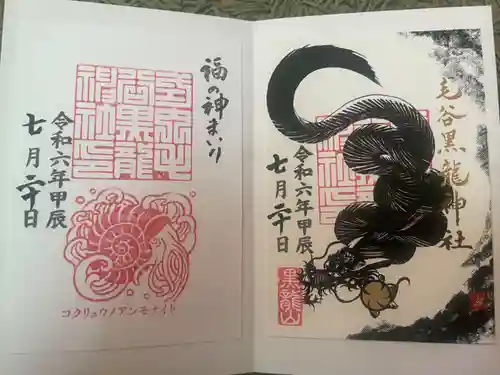 毛谷黒龍神社
令和六年甲辰
七月二十日
福の神まいり
令和六年甲辰
七月二十日
コクリュウノアンモナイト